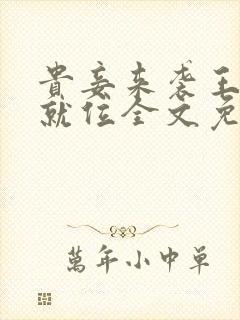 貴妾来袭王
就位全文免
萬年小中单